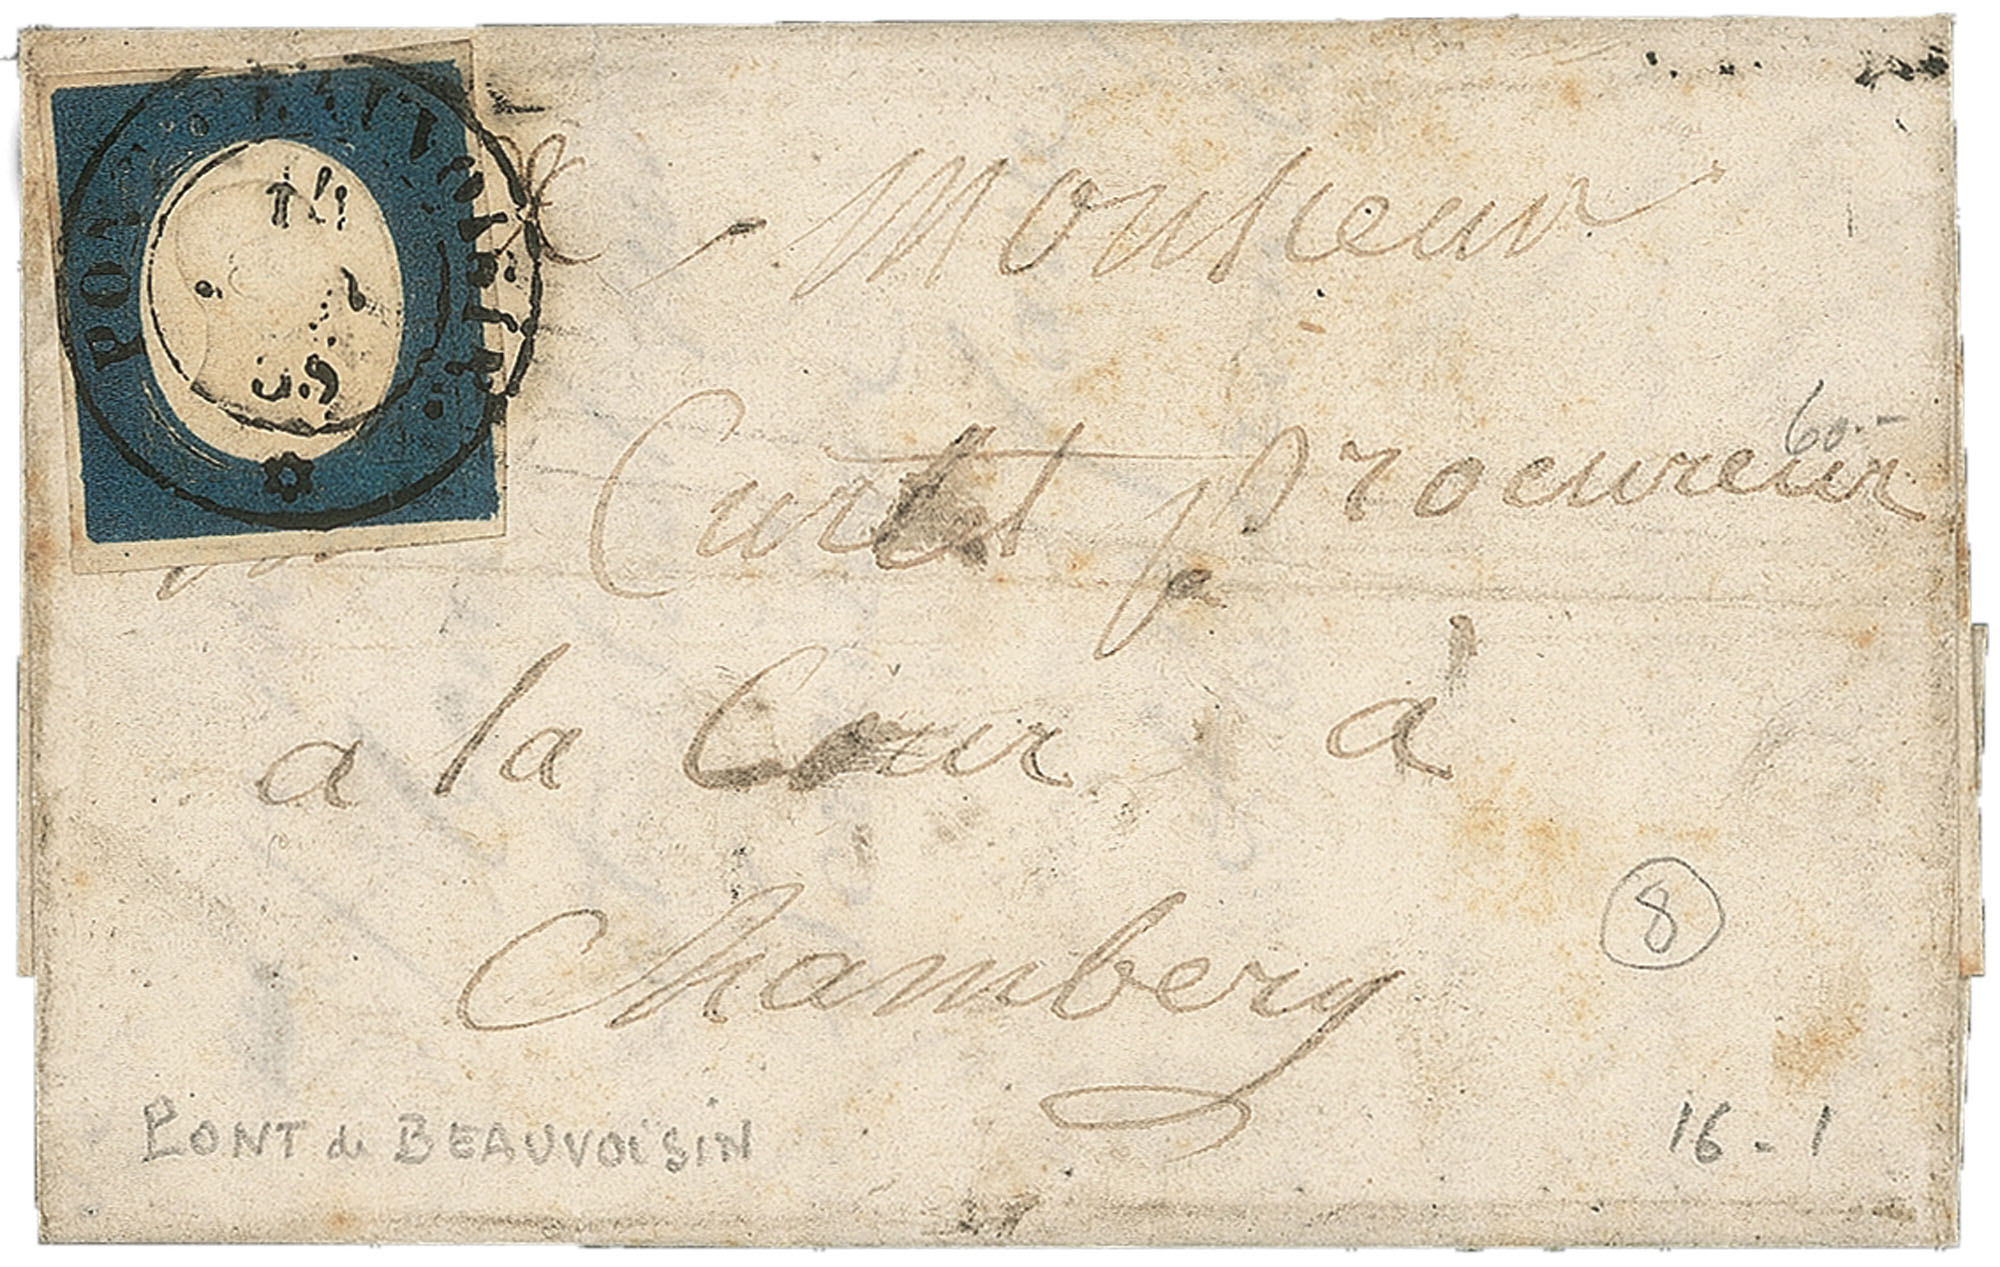 A Monsieur
Curtet procureur
60.-
a la Cour à
Chambery
8
PONT de BEAUVOISIN
16-1